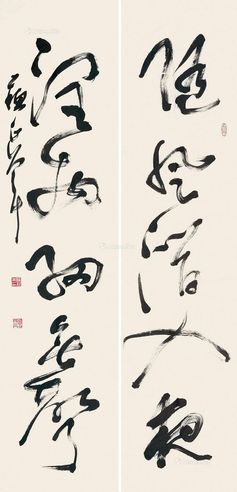 随风潜入夜
润物细无声